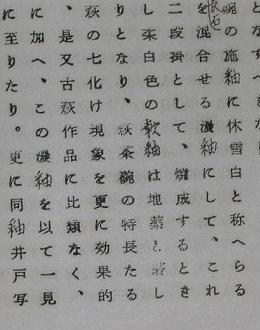 碗の施釉に休雪白と称へらる
を混合せる濃釉にして、これ
二段掛として、焼成するとき
し白色の軟釉は地
りとなり、萩茶碗の特長たる
萩の七化け現象を更に効果的
、是又古萩作品に比類なく、
に加へ、この濃釉を以て一見
に至りたり。更に同釉井戸写